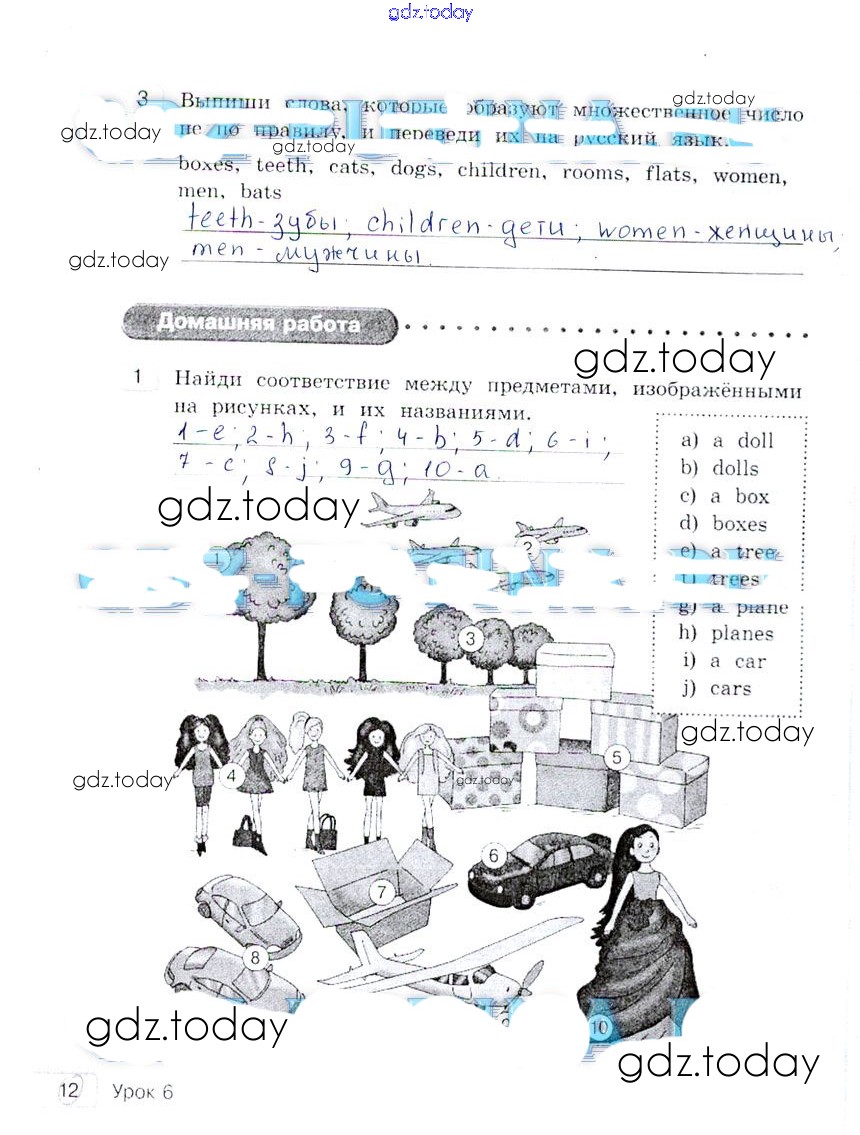 gdz.today
3 Выпиши слова, которые образуют множественное число
gdz.today
не по правилу, и переведи их на русский язык.
gdz.today
gdz.today
boxes, teeth, cats, dogs, children, rooms, flats, women,
men, bats
teeth - зубы; children - дети; women - женщины;
men - мужчины.
gdz.today
Домашняя работа
gdz.today
1 Найди соответствие между предметами, изображёнными
на рисунках, и их названиями.
1 - e; 2 - h; 3 - f; 4 - b; 5 - d; 6 - i;
7 - c; 8 - j; 9 - g; 10 - a
a) a doll
b) dolls
c) a box
d) boxes
e) a tree
f) trees
g) a plane
h) planes
i) a car
j) cars
gdz.today
1
2
3
gdz.today
4
5
gdz.today
gdz.today
6
7
8
10
gdz.today
gdz.today
12 Урок 6